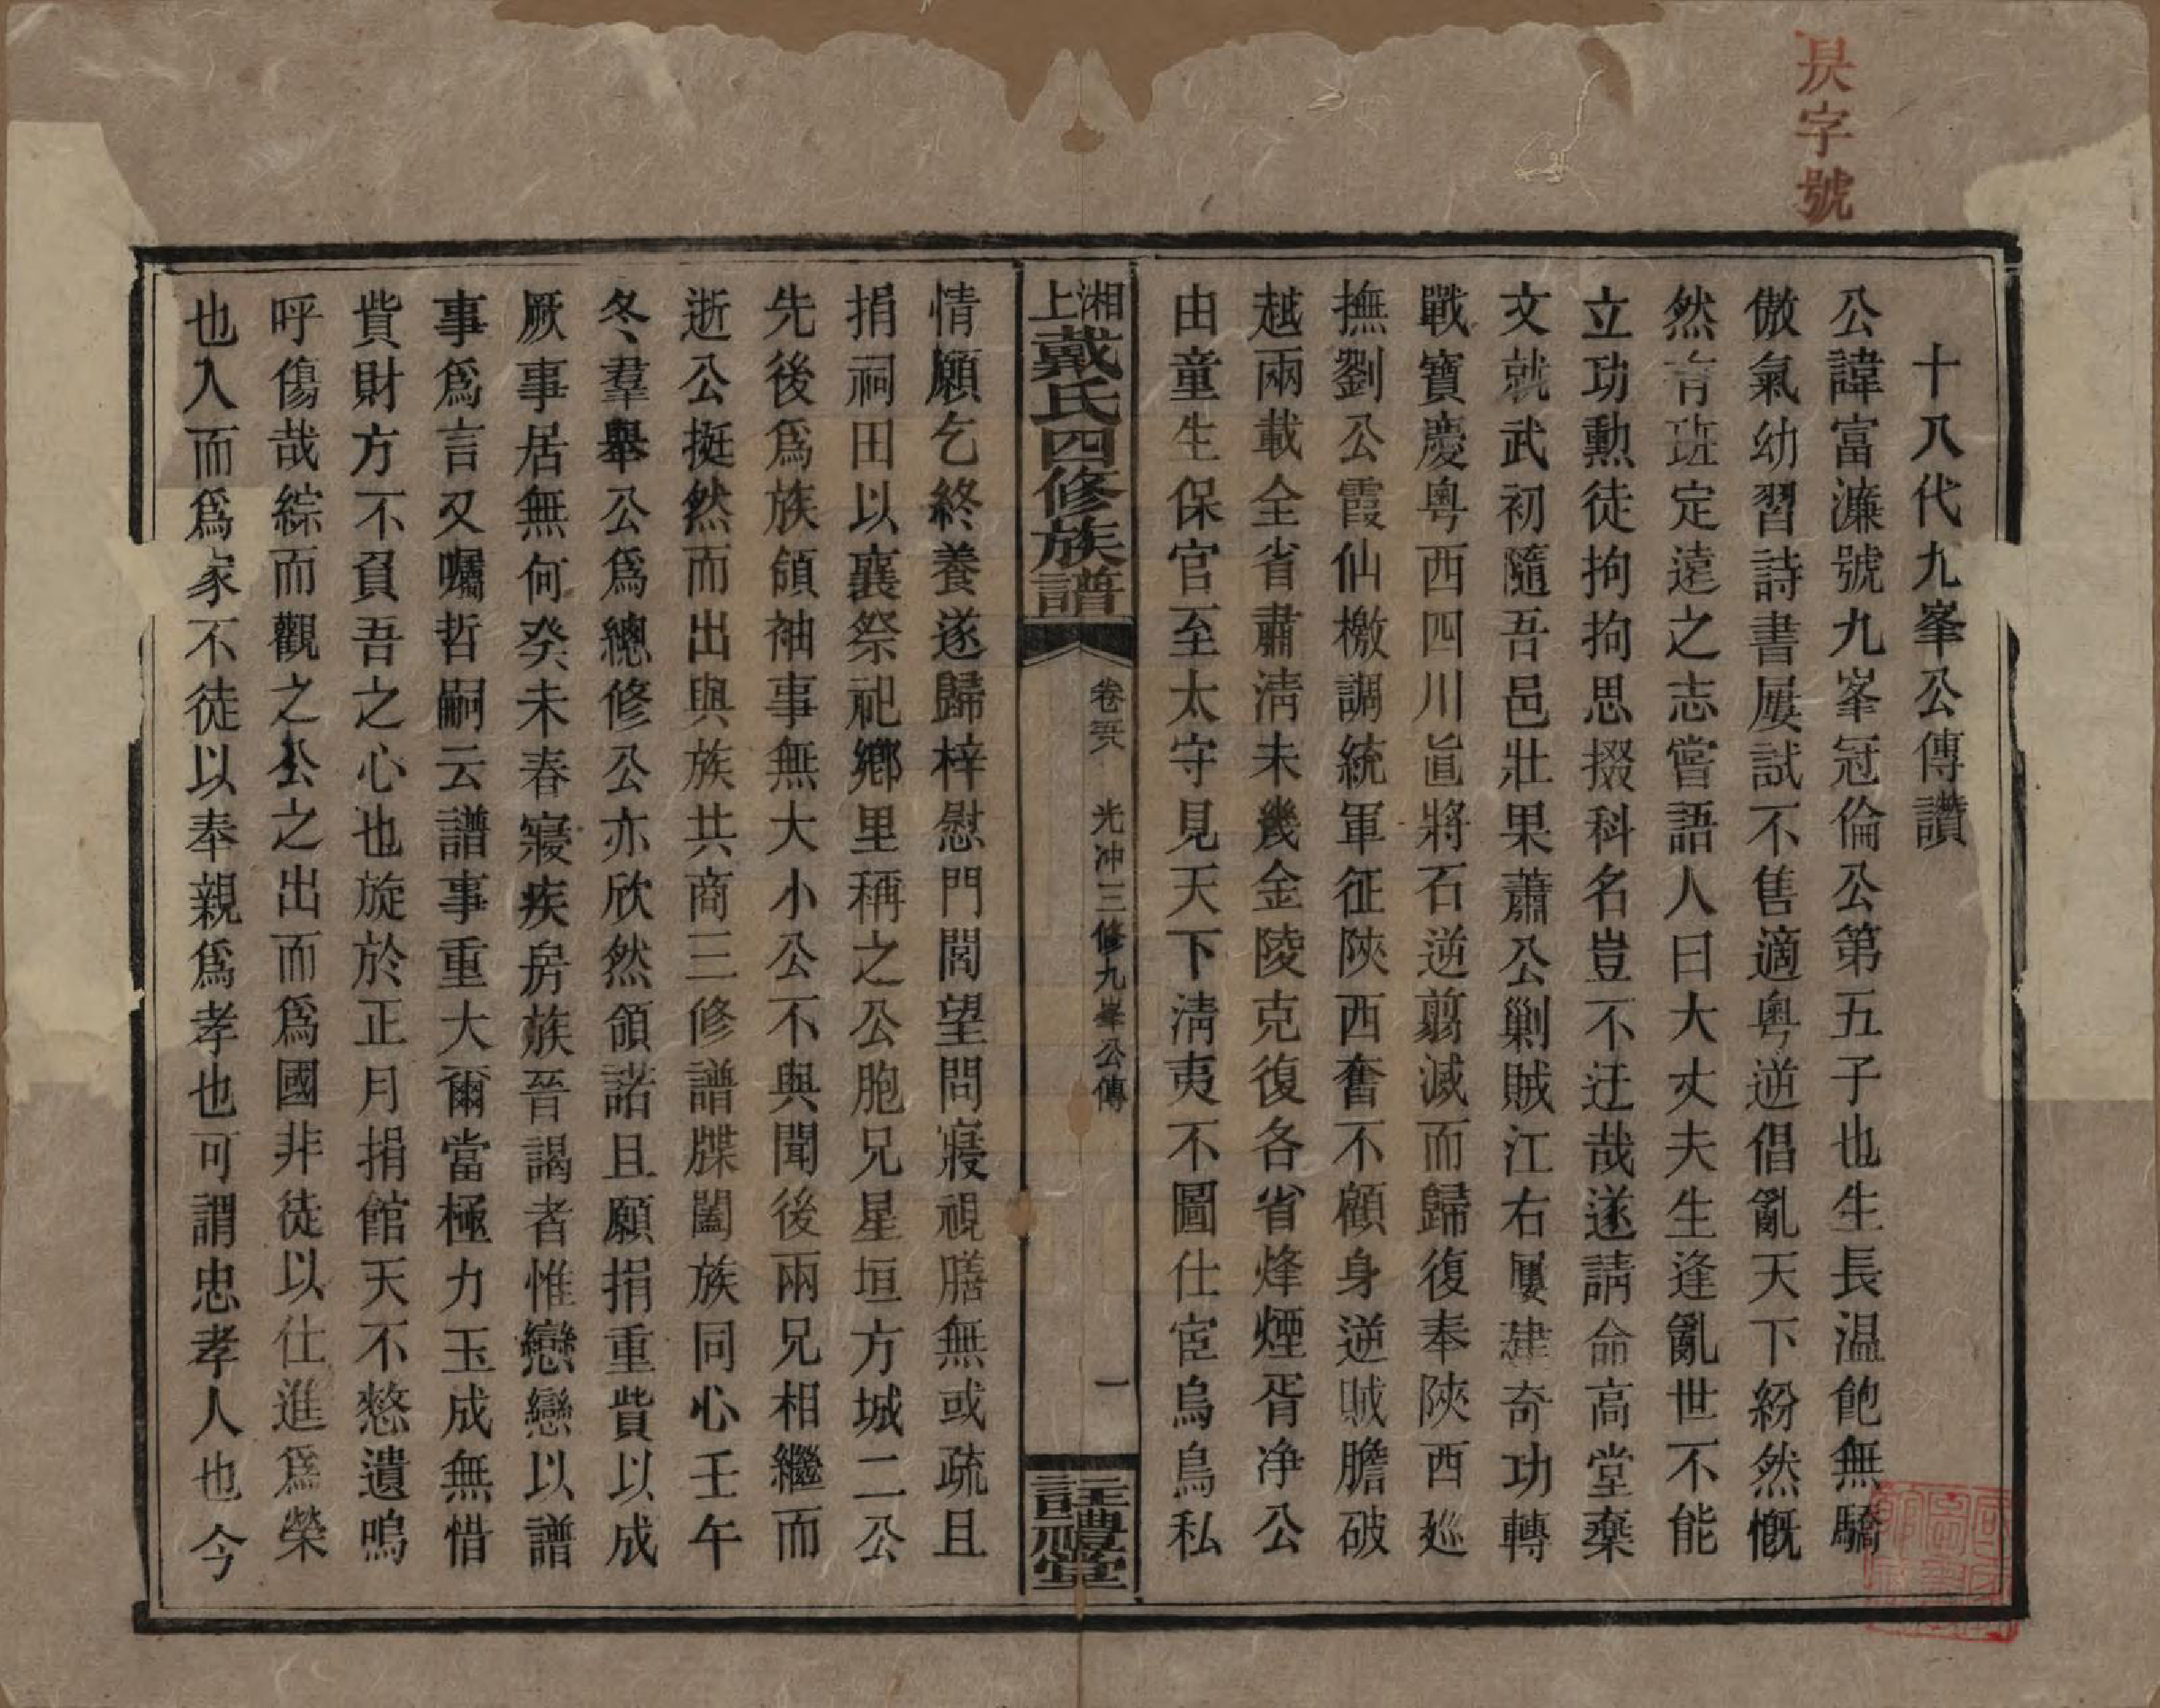 字號
十八代九峯公傳讚
公諱富濂號九峯冠倫公第五子也生長温飽無驕
傲氣幼習詩書屢試不售適粵逆倡亂天下紛然慨
然有班定遠之志嘗語人曰大丈夫生逢亂世不能
立功勳徒拘拘思掇科名豈不迂哉遂請命高堂棄
文就武初隨吾邑壯果蕭公剿賊江右屢建奇功轉
戰寶慶粵西四川眞將石逆翦滅而歸復奉陝西廵
撫劉公霞仙檄調統軍征陝西奮不顧身逆賊膽破
越兩載全省肅淸未幾金陵克復各省烽煙胥净公
由童生保官至太守見天下淸夷不圖仕宦烏鳥私
湘上戴氏四修族譜
卷 光沖三修九峯公傳
一
註禮堂
情願乞終養遂歸梓慰門閭望問寢視膳無或疏且
捐祠田以襄祭祀鄉里稱之公胞兄星垣方城二公
先後爲族領袖事無大小公不與聞後兩兄相繼而
逝公挺然而出與族共商三修譜牒闔族同心壬午
冬羣舉公爲總修公亦欣然領諾且願捐重貲以成
厥事居無何癸未春寢疾房族晉謁者惟戀戀以譜
事爲言又囑哲嗣云譜事重大爾當極力玉成無惜
貲財方不負吾之心也旋於正月捐館天不憖遺嗚
呼傷哉綜而觀之公之出而爲國非徒以仕進爲榮
也入而爲家不徒以奉親爲孝也可謂忠孝人也今